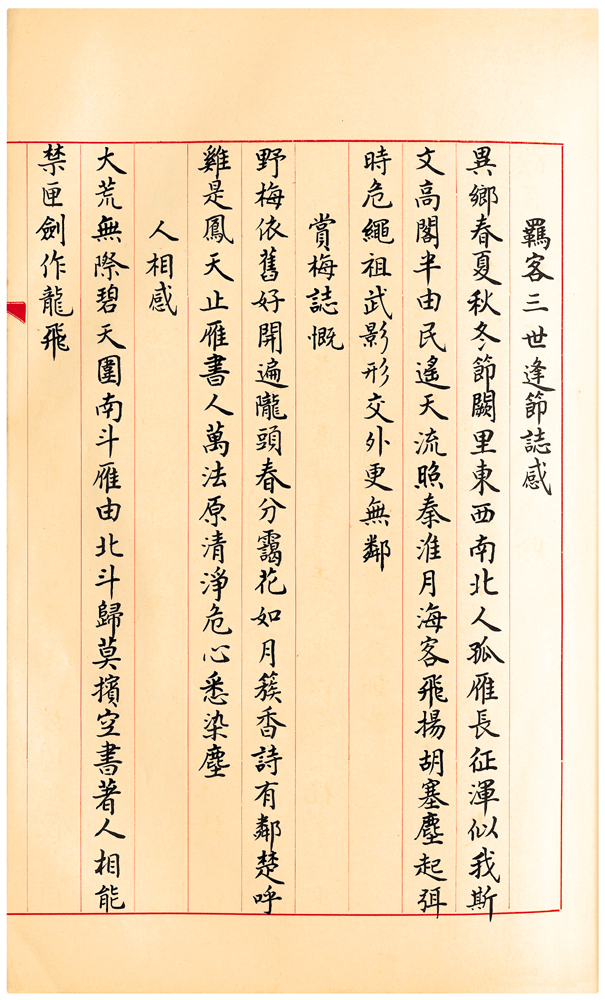 羈客三世逢節誌感
異鄉春夏秋冬節闕里東西南北人孤雁長征渾似我斯
文高閣半由民遙天流照秦淮月海客飛揚胡塞塵起弭
時危繩祖武影形交外更無鄰
賞梅誌慨
野梅依舊好開遍隴頭春分靄花如月簇香詩有鄰楚呼
雞是鳳天止雁書人萬法原清淨危心悉染塵
人相感
大荒無際碧天圍南斗雁由北斗歸莫擯空書著人相能
禁匣劍作龍飛